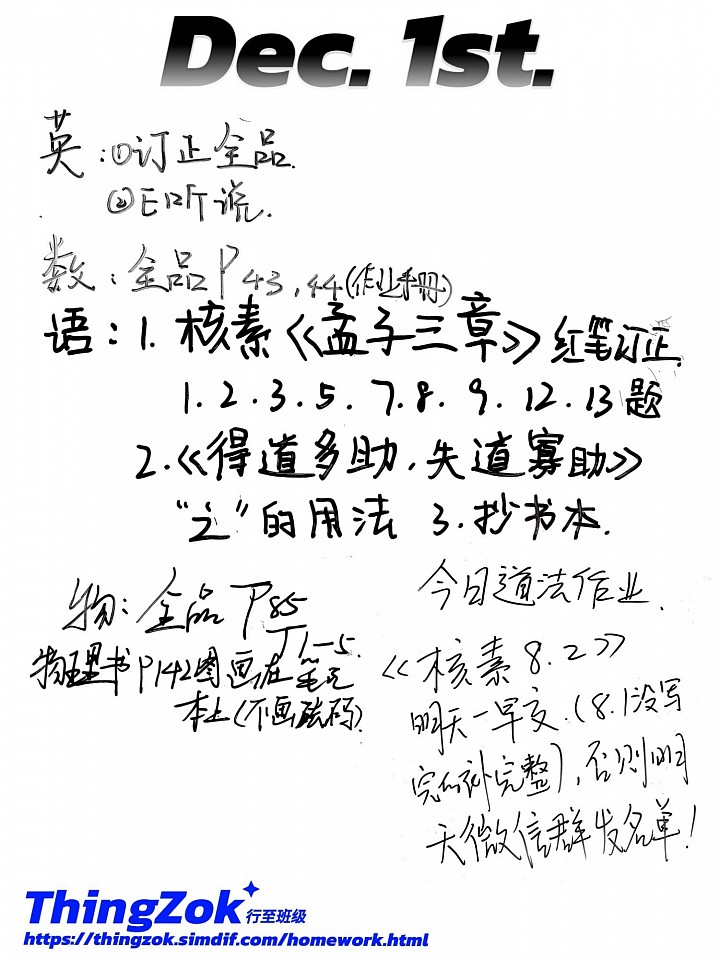 Dec. 1st.
英:①订正全品.
②E听说.
数:全品P43,44(作业手册)
语:1.核素《孟子三章》红笔订正.
1.2.3.5.7.8.9.12.13题
2.《得道多助,失道寡助》
"之"的用法 3.抄书本.
物:全品 P85
T1-5.
物理书P142图画在笔记
本上(不画砝码)
今日道法作业.
《核素8.2》
明天一早交.(8.1没写
完的补完整),否则明
天微信群发名单!
ThingZok 行至班级
https://thingzok.simdif.com/homework.html